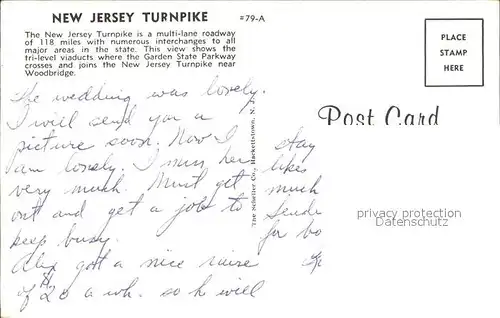 NEW JERSEY TURNPIKE #79-A
The New Jersey Turnpike is a multi-lane roadway
of 118 miles with numerous interchanges to all
major areas in the state. This view shows the
tri-level viaducts where the Garden State Parkway
crosses and joins the New Jersey Turnpike near
Woodbridge.
PLACE
STAMP
HERE
Post Card
The Scheller Co., Hackettstown, N. J.
The wedding was lovely.
I will send you a
picture soon. Now I
am lonely. I miss her
very much. Must get
out and get a job to
keep busy.
Alex got a nice raise
of $20 a wk. so he will
stay
likes
much
for bo
privacy protection
Datenschutz